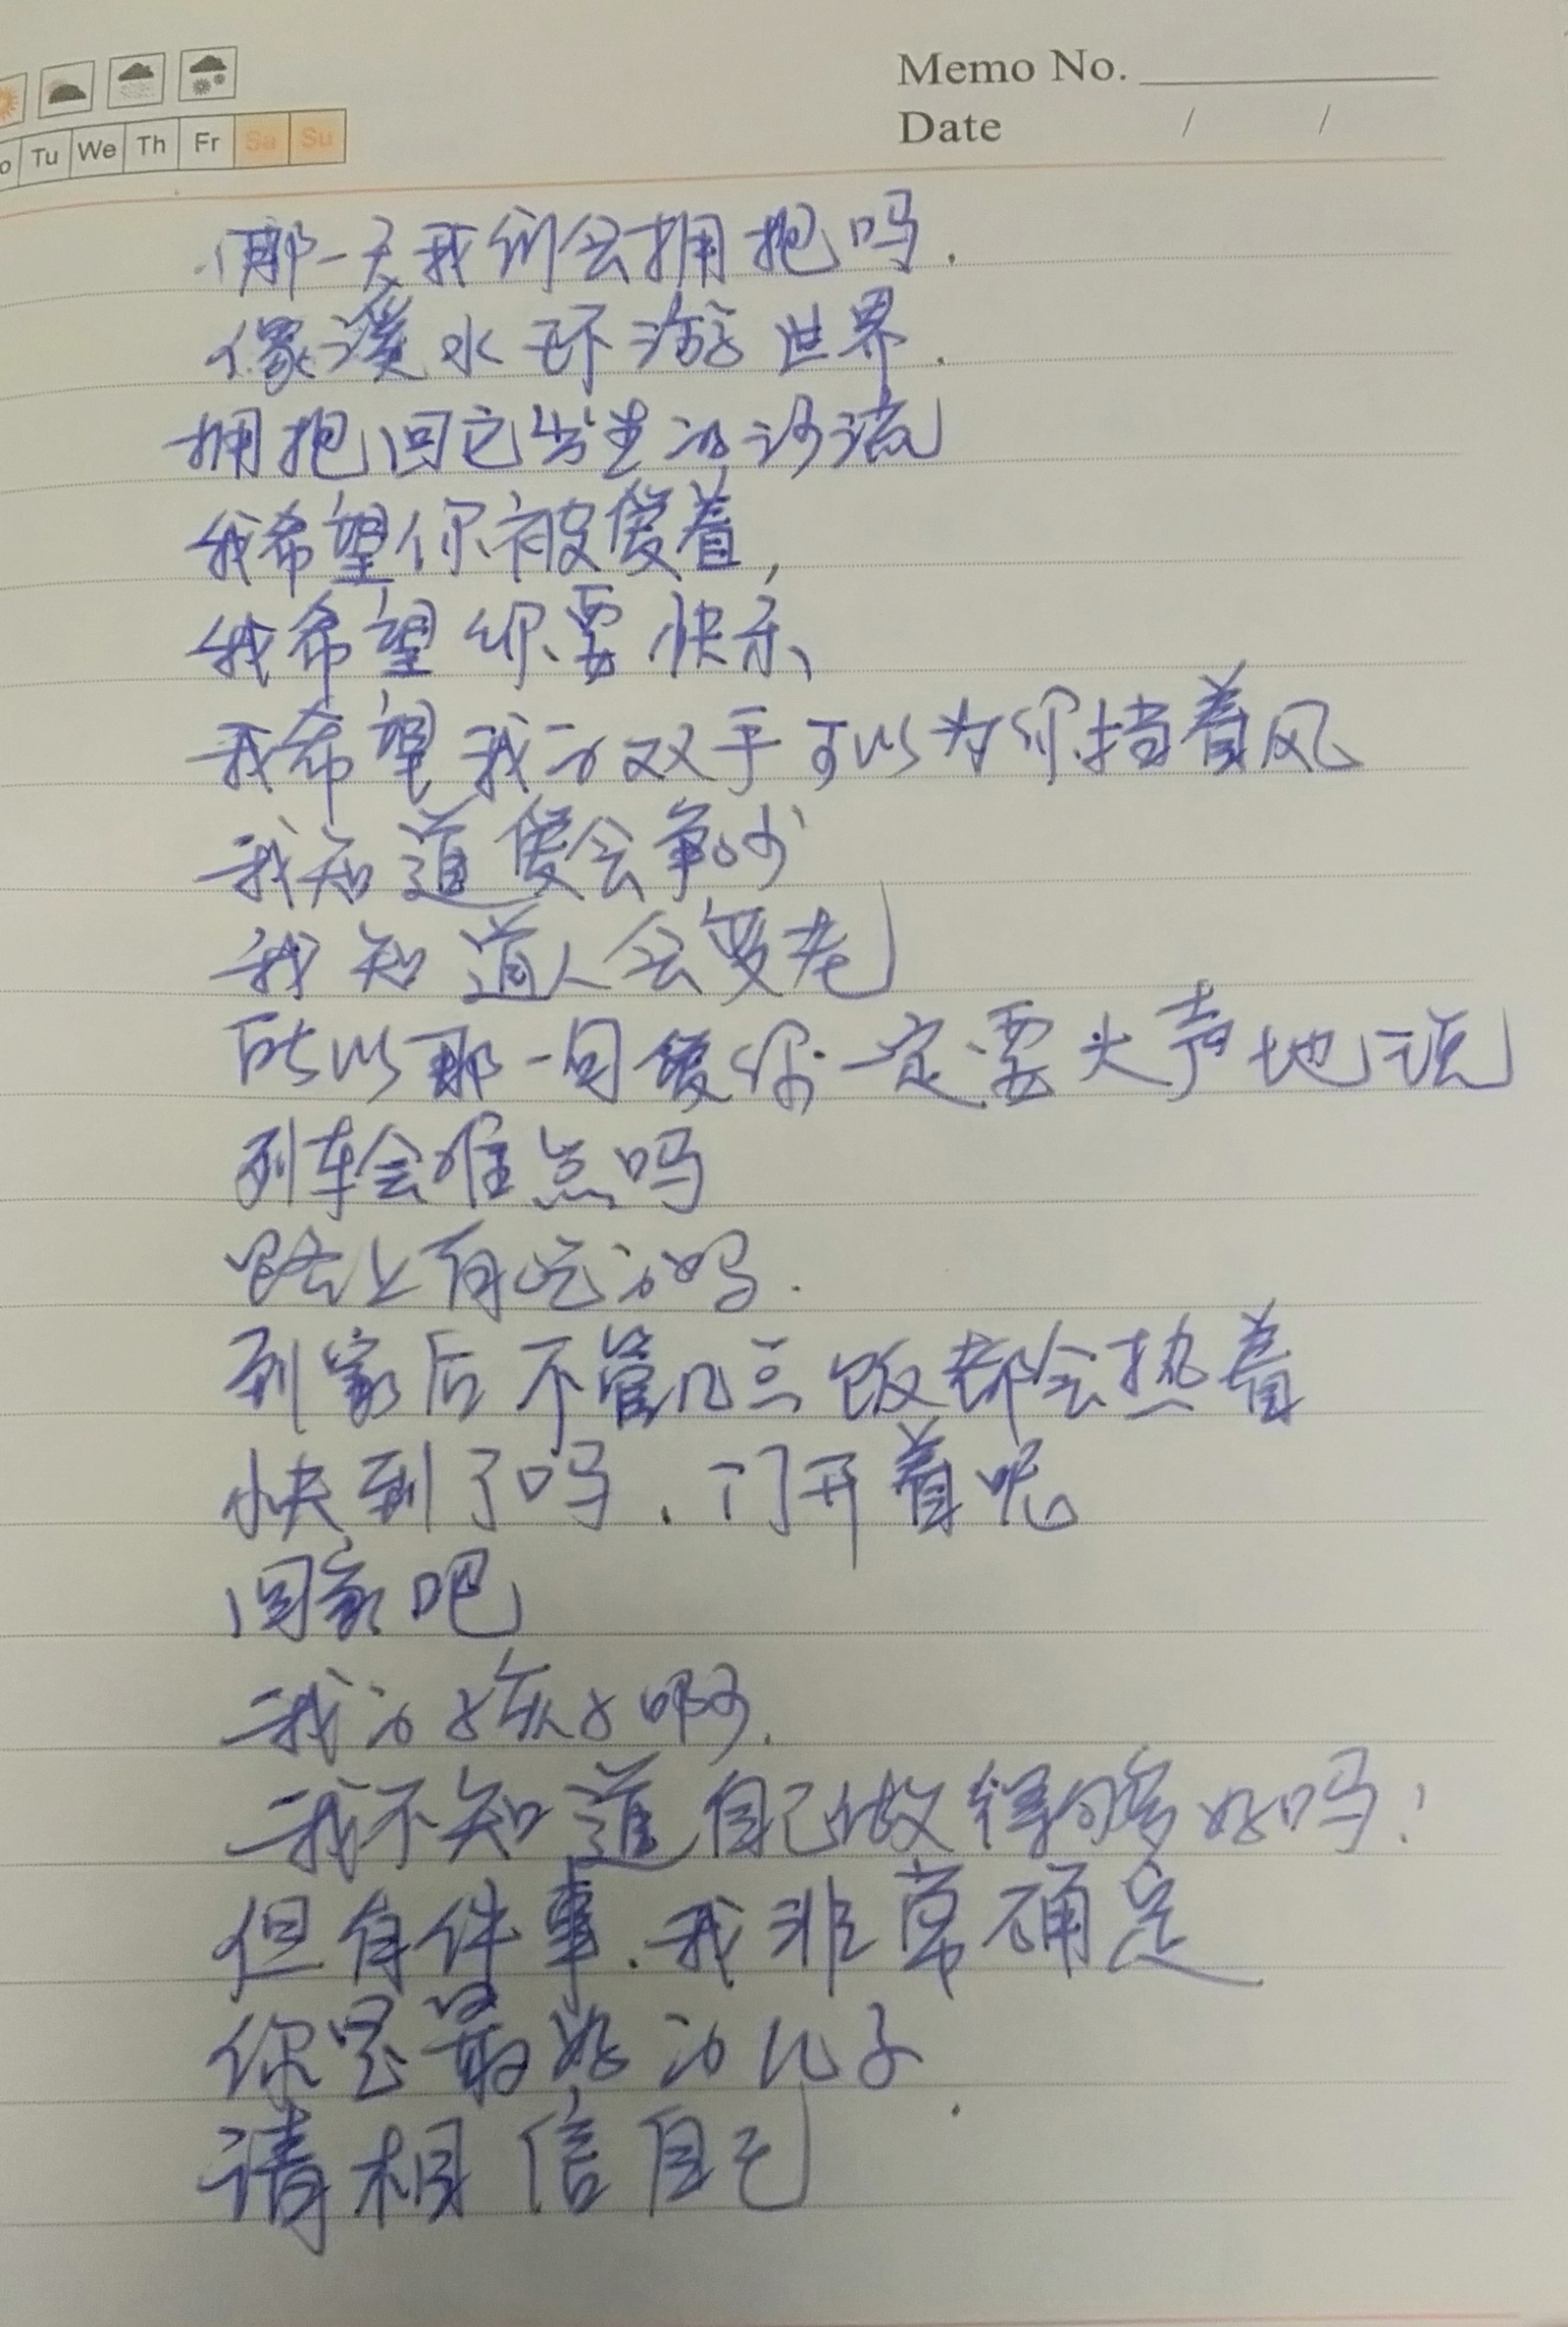 Memo No.
Date / /
Tu We Th Fr Sa Su
那一天我们会拥抱吗.
像溪水环游世界.
拥抱回它出生的河流
我希望你被爱着,
我希望你要快乐
我希望我的双手可以为你挡着风
我知道爱会争吵
我知道人会变老
所以那一句爱你一定要大声地说
列车会准点吗
路上有吃的吗.
到家后不管几点饭都会热着
快到了吗.门开着呢
回家吧
我的孩子啊.
我不知道自己做得够多好吗!
但有件事.我非常确定
你是最好的儿子
请相信自己